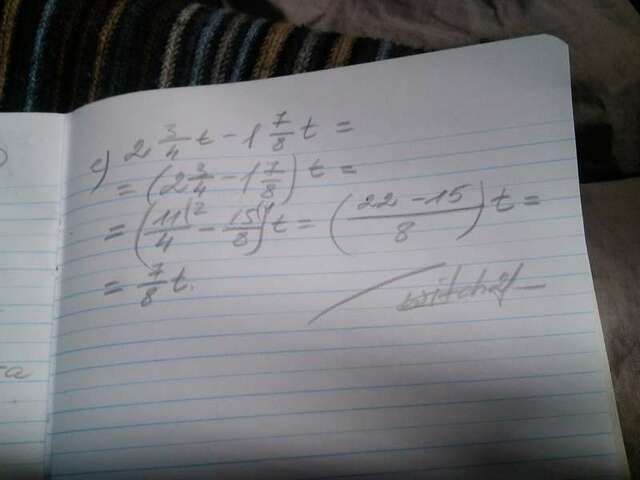 c) 2 3/4 t - 1 7/8 t =
= (2 3/4 - 1 7/8) t =
= (11/4 |2 - 15/8 |1) t = ((22 - 15)/8) t =
= 7/8 t.